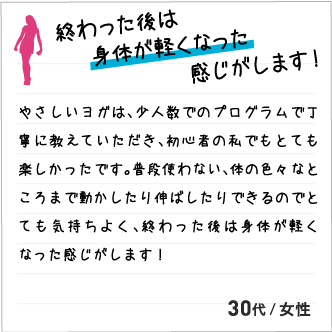 終わった後は
身体が軽くなった
感じがします!
やさしいヨガは、少人数でのプログラムで丁
寧に教えていただき、初心者の私でもとても
楽しかったです。普段使わない、体の色々なと
ころまで動かしたり伸ばしたりできるのでと
ても気持ちよく、終わった後は身体が軽く
なった感じがします!
30代 / 女性